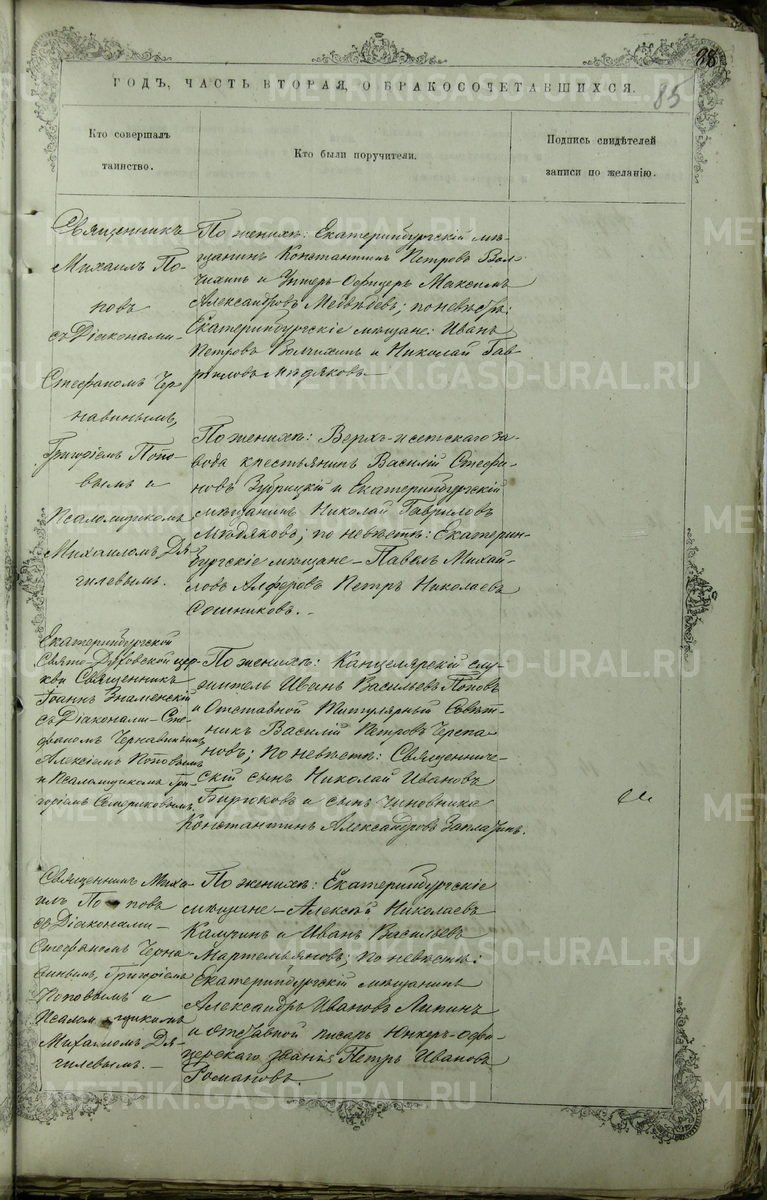 88
85
ГОДЪ, ЧАСТЬ ВТОРАЯ, О БРАКОСОЧЕТАВШИХСЯ.
Кто совершалъ
таинство.
Кто были поручители.
Подпись свидѣтелей
записи по желанію.
Священникъ
Михаилъ По-
повъ
съ Діаконами-
Стефаномъ Чер-
навинымъ,
Григоріемъ Попо-
вымъ и
Псаломщикомъ
Михаиломъ Дя-
гилевымъ.
По женихѣ: Екатеринбургскій мѣ-
щанинъ Константинъ Петровъ Вол-
чихинъ и Унтеръ-Офицеръ Максимъ
Александровъ Медвѣдевъ; по невѣстѣ:
Екатеринбургскіе мѣщане: Иванъ
Петровъ Волчихинъ и Николай Гав-
риловъ Мѣдяковъ.
По женихѣ: Верхъ-Исетскаго за-
вода крестьянинъ Василій Стефа-
новъ Зубрицкій и Екатеринбургскій
мѣщанинъ Николай Гавриловъ
Мѣдяковъ; по невѣстѣ: Екатерин-
бургскіе мѣщане - Павелъ Михай-
ловъ Алферовъ Петръ Николаевъ
Сошниковъ. -
Екатеринбургской
Свято-Духовской цер-
кви Священникъ
Іоаннъ Знаменскій
съ Діаконами - Сте-
фаномъ Чернавинымъ,
Алексіемъ Поповымъ
и Псаломщикомъ Гри-
горіемъ
По женихѣ: Канцелярскій слу-
житель Иванъ Васильевъ Поповъ
и Отставной Титулярный Совѣт-
никъ Василій Петровъ Черепа-
новъ; по невѣстѣ: Священниче-
скій сынъ Николай Ивановъ
Бирюковъ и сынъ чиновника
Константинъ Александровъ
Священникъ Миха-
илъ Поповъ
съ Діаконами -
Стефаномъ Черна-
винымъ, Григоріемъ
Поповымъ и
Псаломщикомъ
Михаиломъ Дя-
гилевымъ. -
По женихѣ: Екатеринбургскіе
мѣщане - Алексѣй Николаевъ
Калугинъ и Иванъ Васильевъ
Мартемьяновъ; по невѣстѣ:
Екатеринбургскій мѣщанинъ
Александръ Ивановъ Липинъ
и отставной писарь Унтеръ-Офи-
церскаго званія Петръ Ивановъ
Романовъ.
METRIKI.GASO-URAL.RU